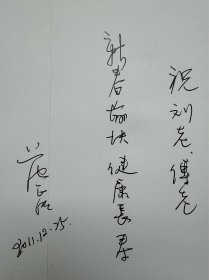 祝刘老、傅老
新春愉快健康长寿
2011.12.25.